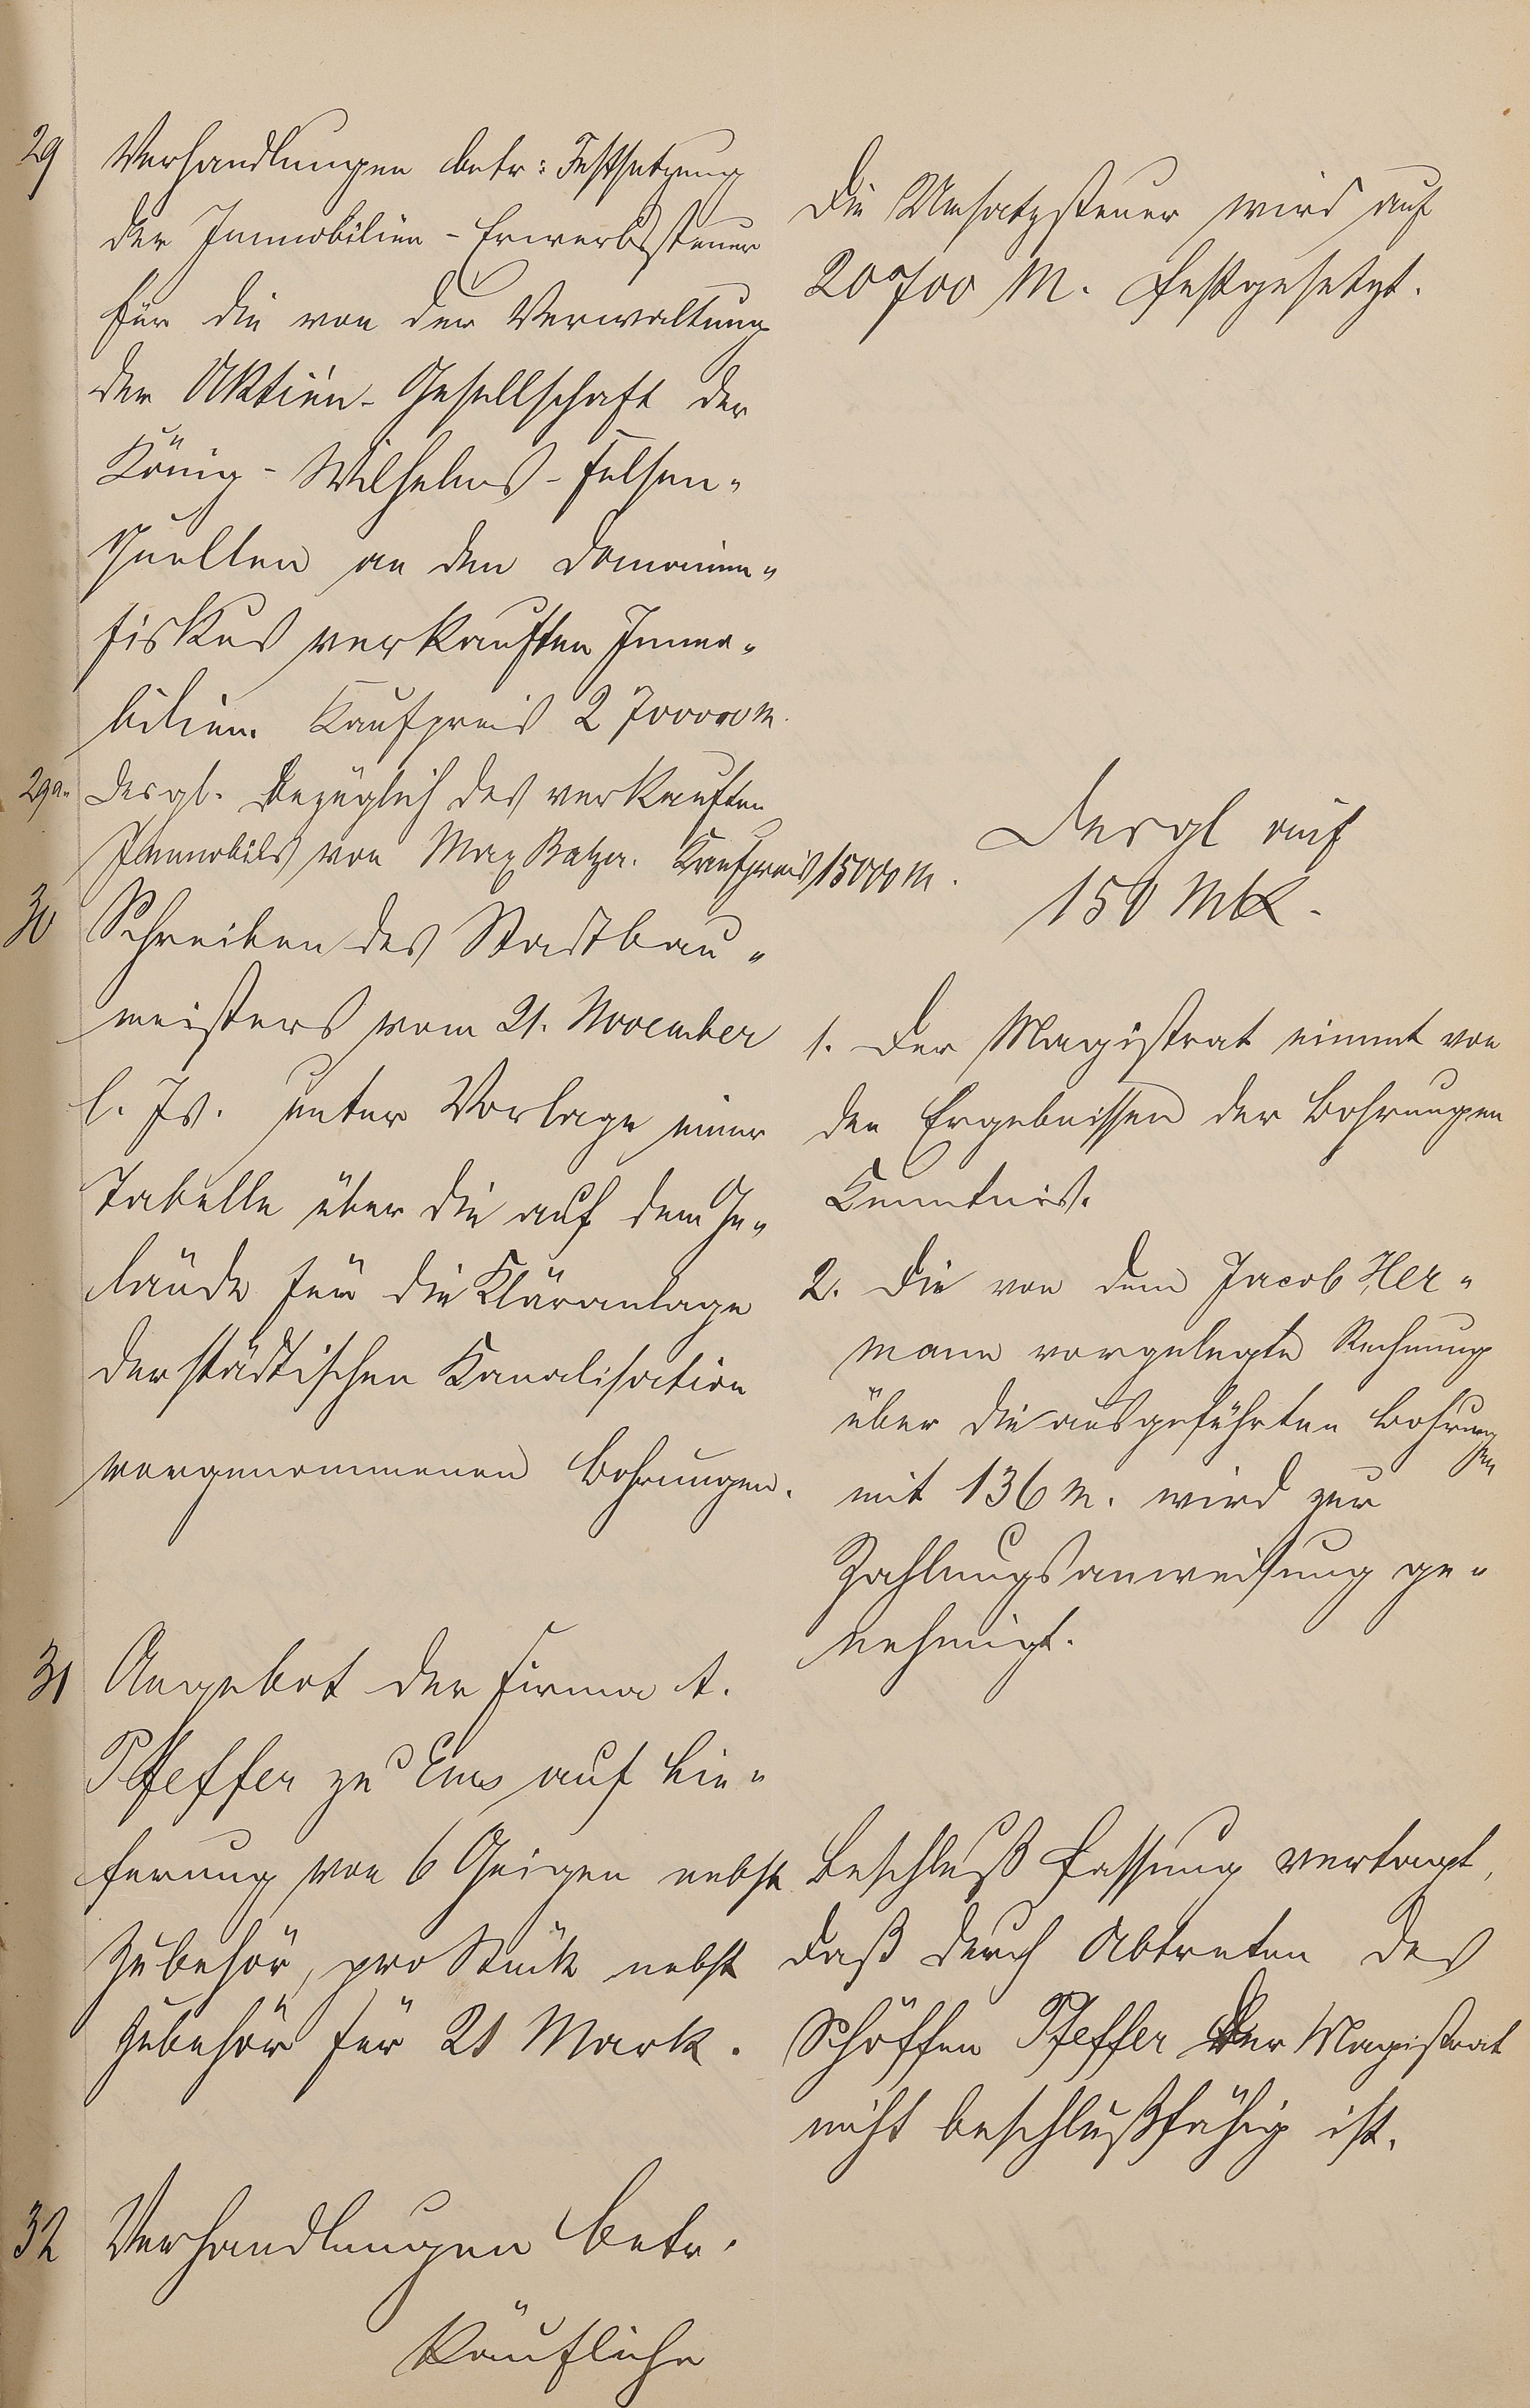 29
Verhandlungen betr: Festsetzung
der Immobilien-Erwerbssteuer
für die von der Verwaltung
der Aktien-Gesellschaft der
König-Wilhelms-Felsen„
quellen an den Domainen„
fiskus verkauften Immo„
bilien. Kaufpreis 2 700000 M.
Die Umsatzsteuer wird auf
20700 M. festgesetzt.
29a.
Desgl. bezüglich des verkauften
Immobils von Max Balzer. Kaufpreis 15000 M.
Desgl auf
150 Mk.
30
Schreiben des Stadtbau„
meisters vom 21. November
l. Js. unter Vorlage einer
Tabelle über die auf dem Ge„
lände für die Kläranlage
der städtischen Kanalisation
vorgenommenen Bohrungen.
1. Der Magistrat nimmt von
den Ergebnissen der Bohrungen
Kenntnis.
2. Die von dem Jacob Her„
mann vorgelegte Rechnung
über die ausgeführten Bohrungen
mit 136 M. wird zur
Zahlungsanweisung ge„
nehmigt.
31
Angebot der Firma A.
Pfeffer zu Ems auf Lie„
ferung von 6 Geigen nebst
Zubehör, pro Stück nebst
Zubehör für 21 Mark.
Beschlußfassung vertagt,
daß durch Abtreten des
Schöffen Pfeffer der Magistrat
nicht beschlußfähig ist.
32
Verhandlungen betr.
käufliche